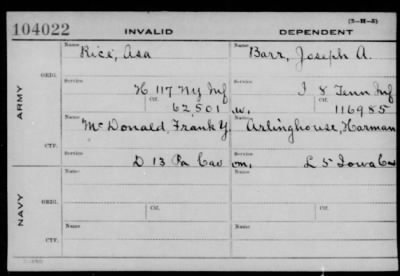 (3-H-5)
104022 INVALID DEPENDENT
Name Name
Rice, Asa Barr, Joseph A.
ORIG.
Service Service
H 117 Ny Inf I 8 Tenn Inf
Ctf. Ctf.
ARMY
62,501 w. 116985
Name Name
McDonald, Frank Y. Arlinghouse, Harman
CTF.
Service Service
D 13 Pa Cav m. L 5 Iowa Cav
Name Name
ORIG. Ctf. Ctf.
NAVY
Name Name
CTF.